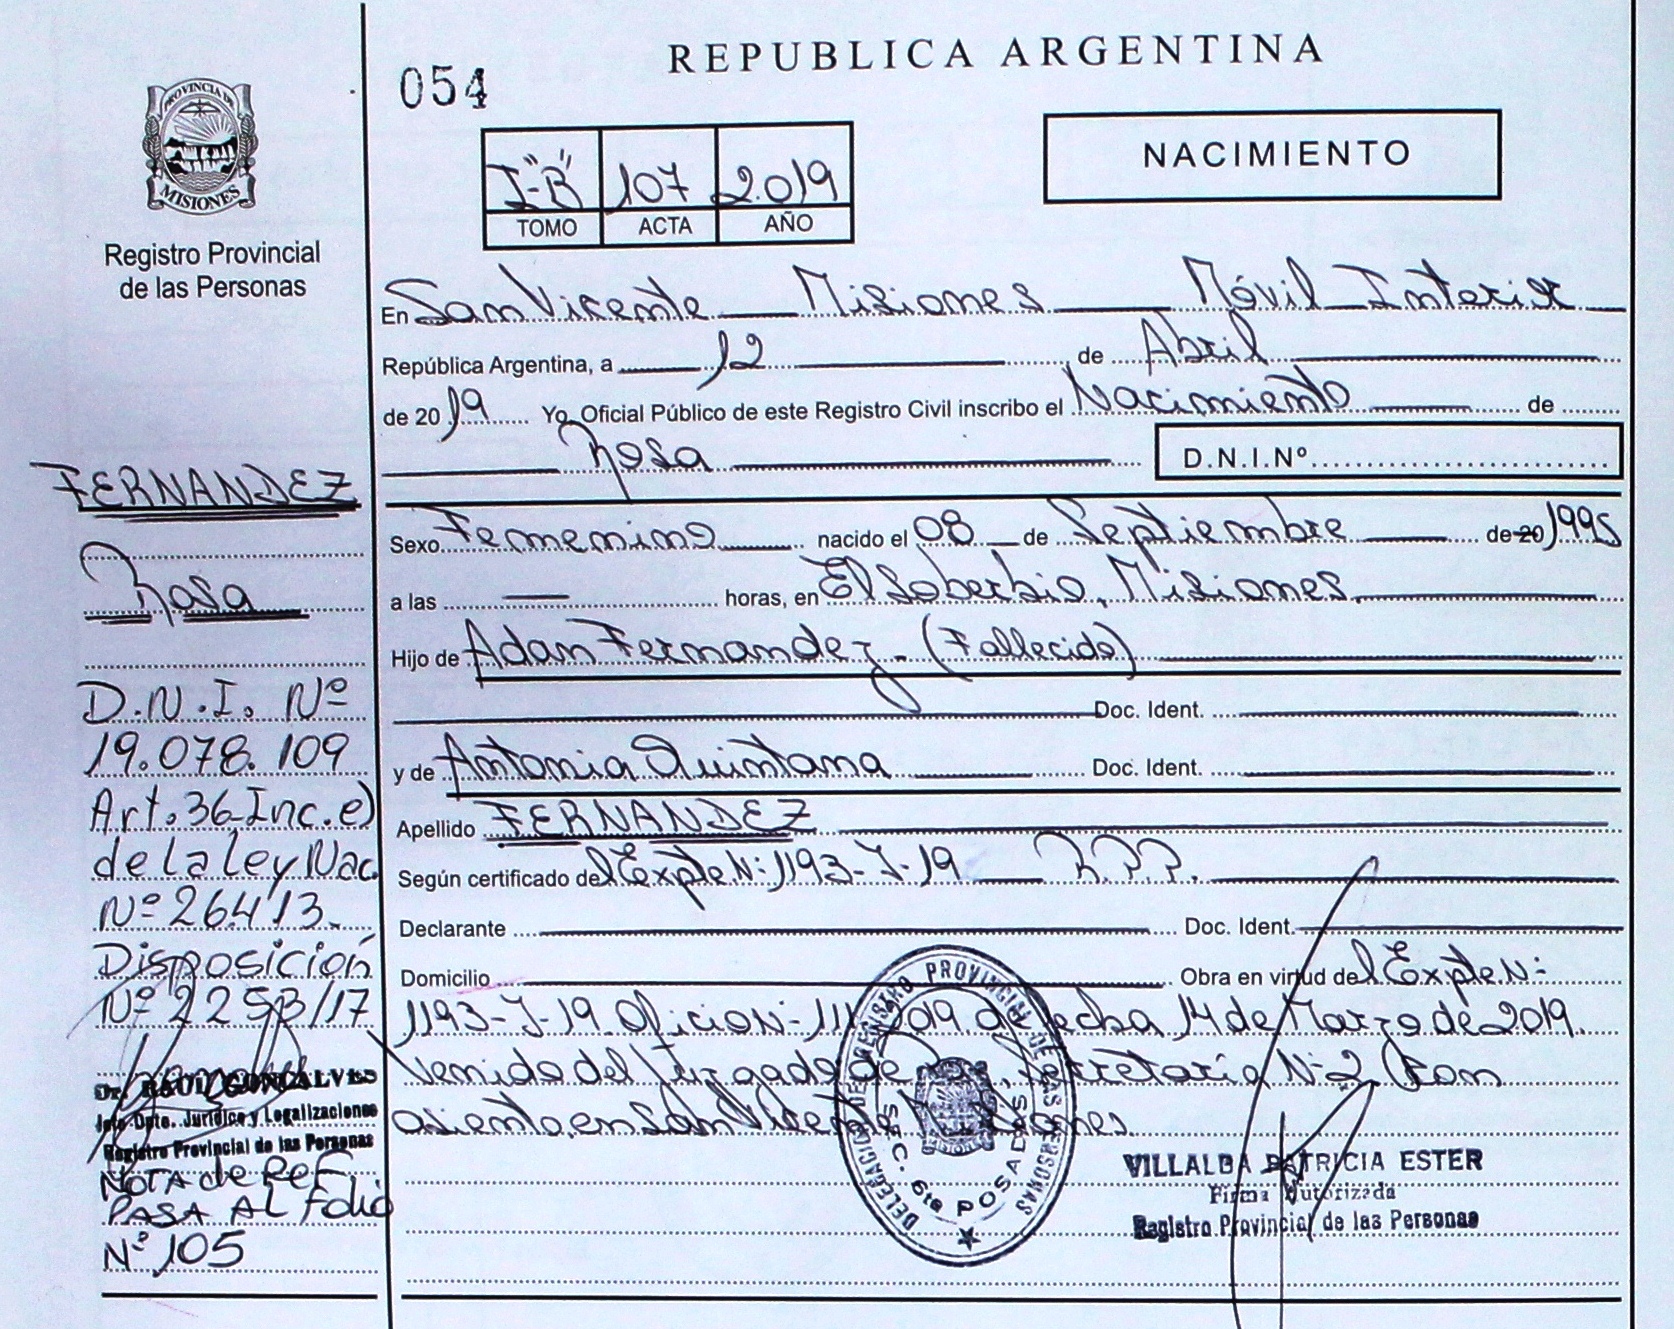 REPUBLICA ARGENTINA
054
PROVINCIA DE
MISIONES
Registro Provincial
de las Personas
I-"B" 107 2.019
TOMO ACTA AÑO
NACIMIENTO
En San Vicente Misiones Móvil Interior
República Argentina, a 12 de Abril
de 2019 Yo, Oficial Público de este Registro Civil inscribo el Nacimiento de
Rosa D.N.I.Nº
Sexo Femenino nacido el 08 de Septiembre de 20 1995
a las — horas, en El Soberbio, Misiones.
Hijo de Adan Fernandez - (Fallecido)
Doc. Ident.
y de Antonia Quintana Doc. Ident.
Apellido FERNANDEZ
Según certificado del Expte N: 1193-J-19 R.P.P.
Declarante Doc. Ident.
Domicilio Obra en virtud del Expte N:
1193-J-19 Oficio N- 2019 de fecha 14 de Marzo de 2019.
Venido del Juzgado de Secretaría N:2 Con
asiento en San Vicente
FERNANDEZ
Rosa
D.N.I. Nº
19.078.109
Art. 36-Inc. e)
de la ley Nac.
Nº 26413.
Disposición
Nº 2253/17
Dr. RAUL GONCALVES
Jefe Dpto. Jurídico y Legalizaciones
Registro Provincial de las Personas
NOTA de REF
PASA AL Folio
Nº 105
DELEGACION DE REGISTRO PROVINCIAL DE LAS PERSONAS
SEC. 6ta POSADAS
VILLALBA PATRICIA ESTER
Firma Autorizada
Registro Provincial de las Personas